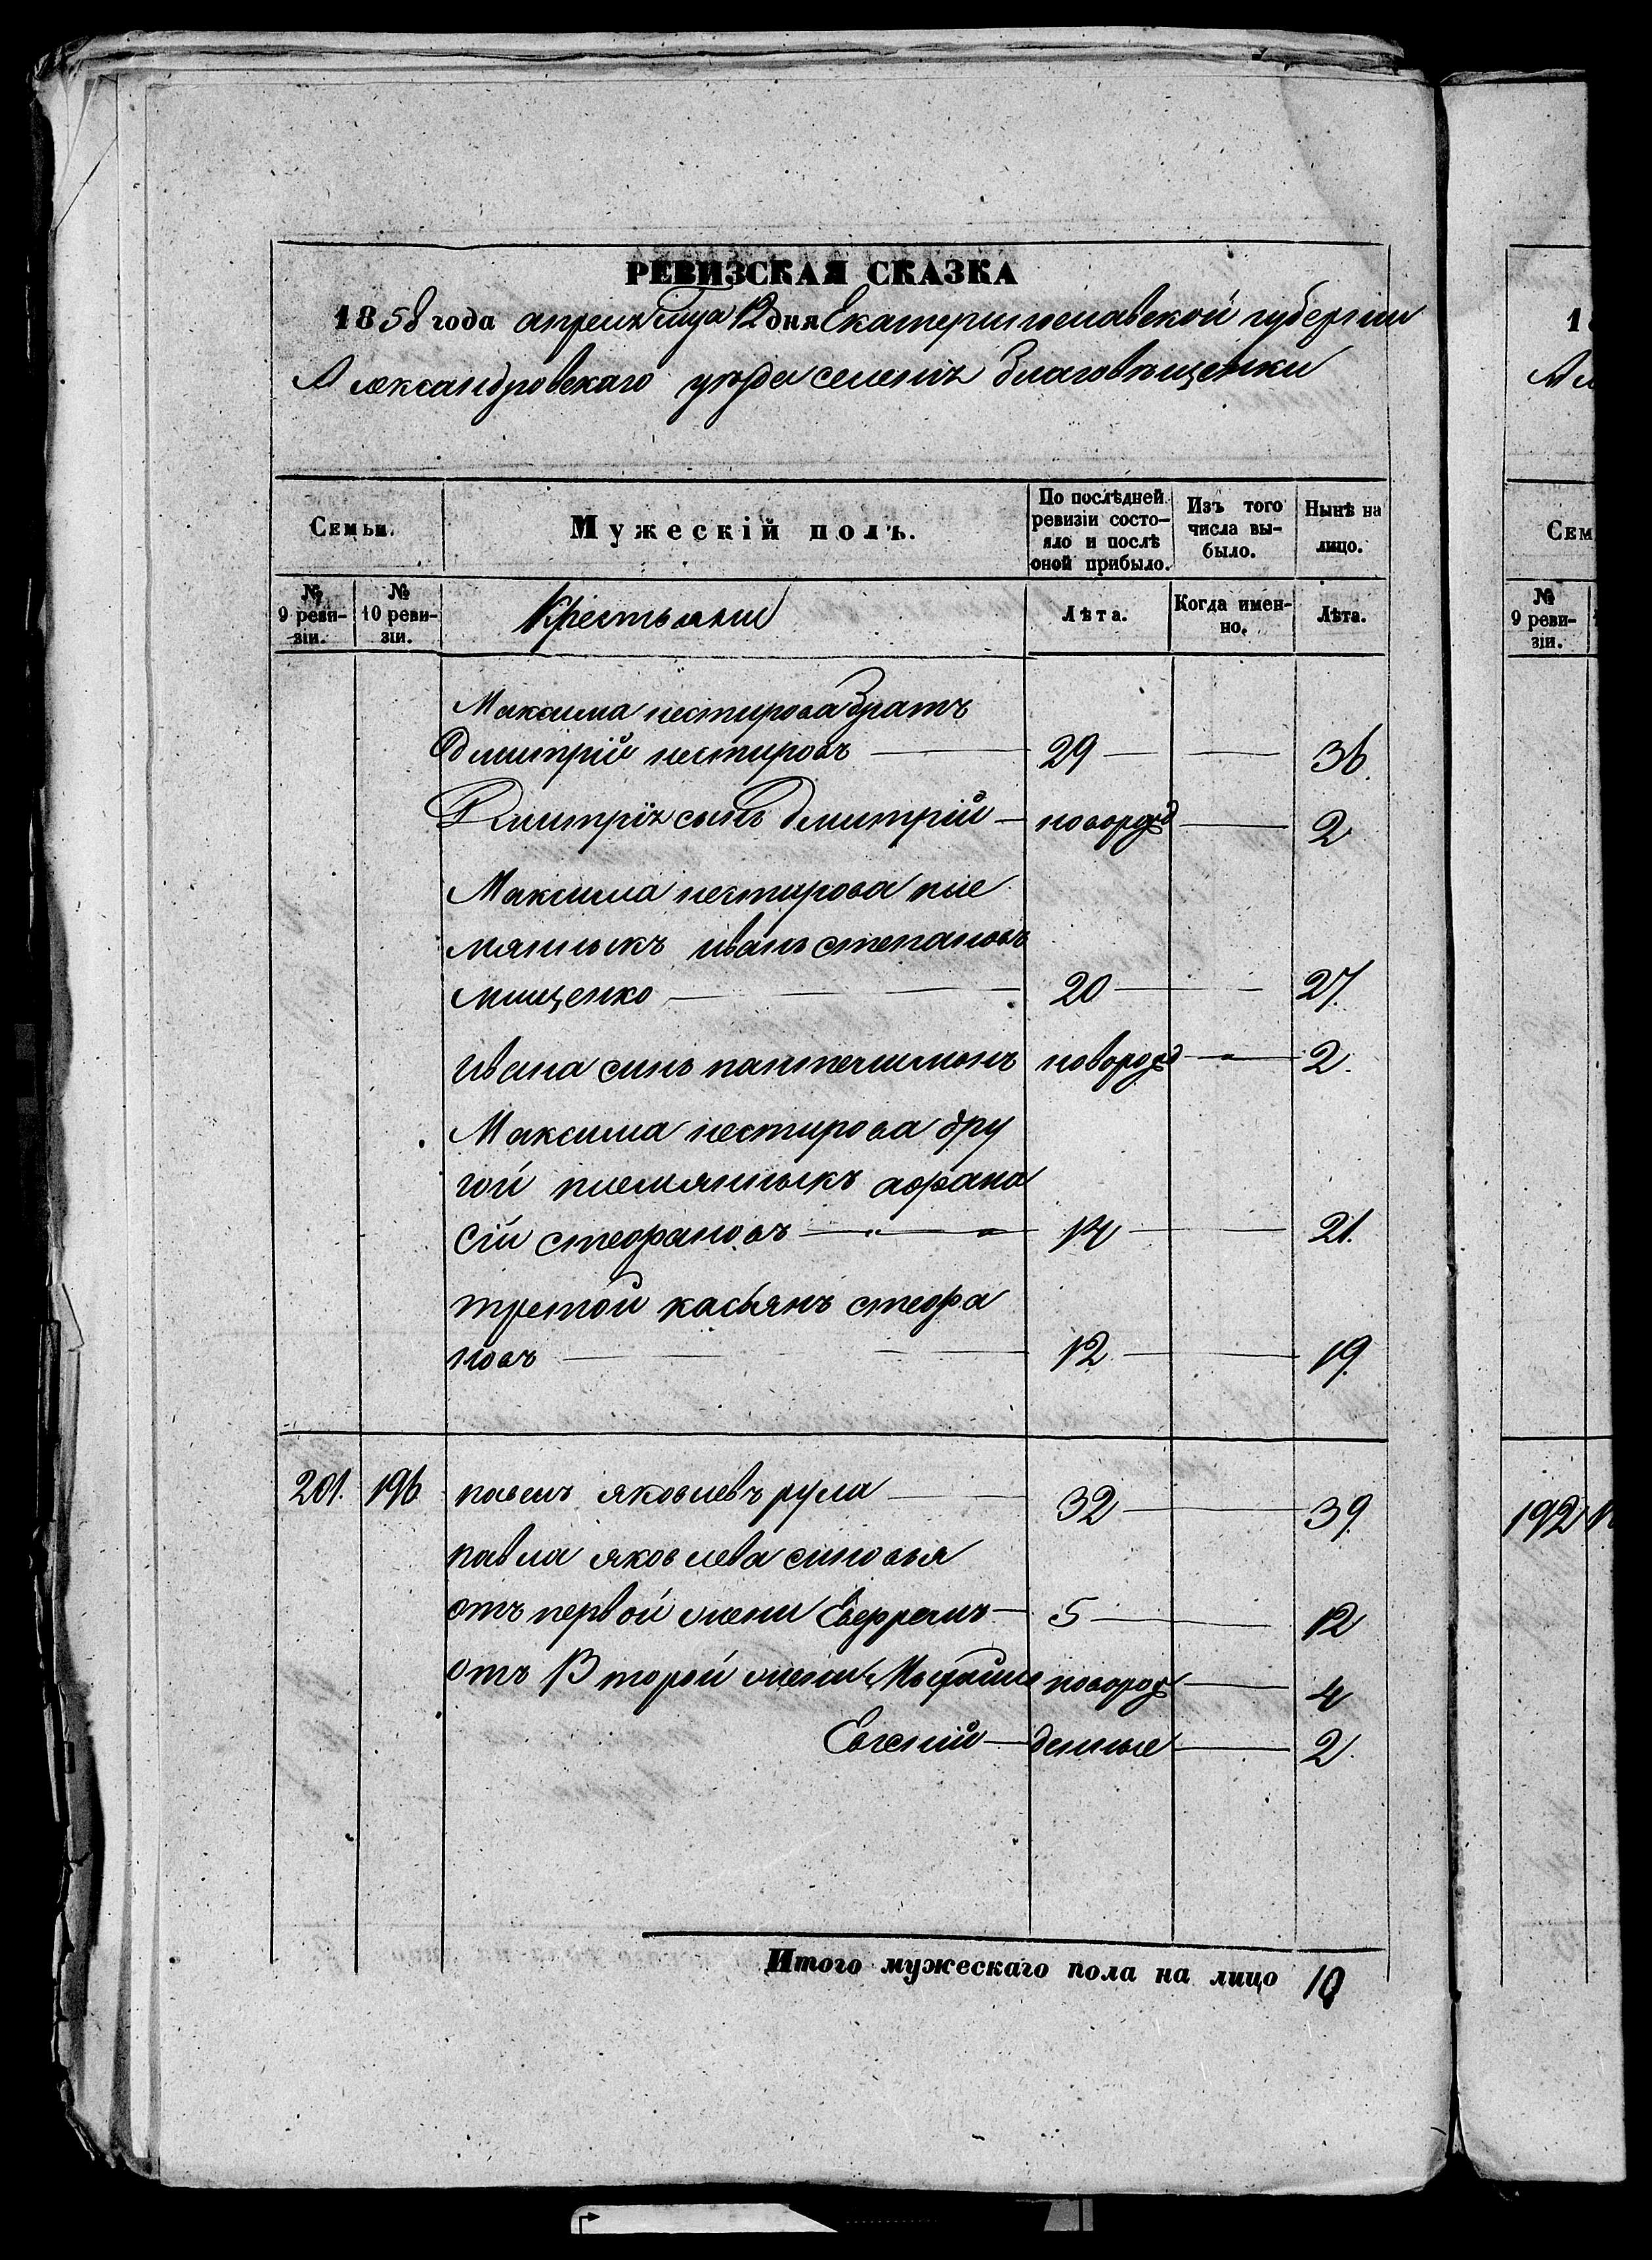 РЕВИЗСКАЯ СКАЗКА
1858 года апреля мца 12 дня Екатеринославской губернии
Александровского уезда селенія Благовѣщенки
Семьи. Мужескій полъ. По послѣдней ревизіи состояло и послѣ оной прибыло. Изъ того числа выбыло. Нынѣ на лицо.
№ 9 ревизіи. № 10 ревизіи. Крестьяни Лѣта. Когда именно. Лѣта.
Максима нестирова братъ
дмитрій нестировъ 29 36.
Дмитрія сынъ дмитрій новорожд 2
Максима нестирова пле
мянныкъ иванъ степановъ
мищенко 20 27.
ивана синъ пантелимонъ новорожд 2.
Максима нестирова дру
гой племянныкъ афана
сій стефановъ 14 21.
третой касьянъ стефа
новъ 12. 19.
201. 196 павелъ яковлевъ рула 32 39.
павла яковлева синовья
отъ первой жени Ефремъ 5 12
отъ второй жени новорож 4
Евгеній денные 2.
Итого мужескаго пола на лицо 10
18
Ал
Сем
№ 9 ревизіи.
192